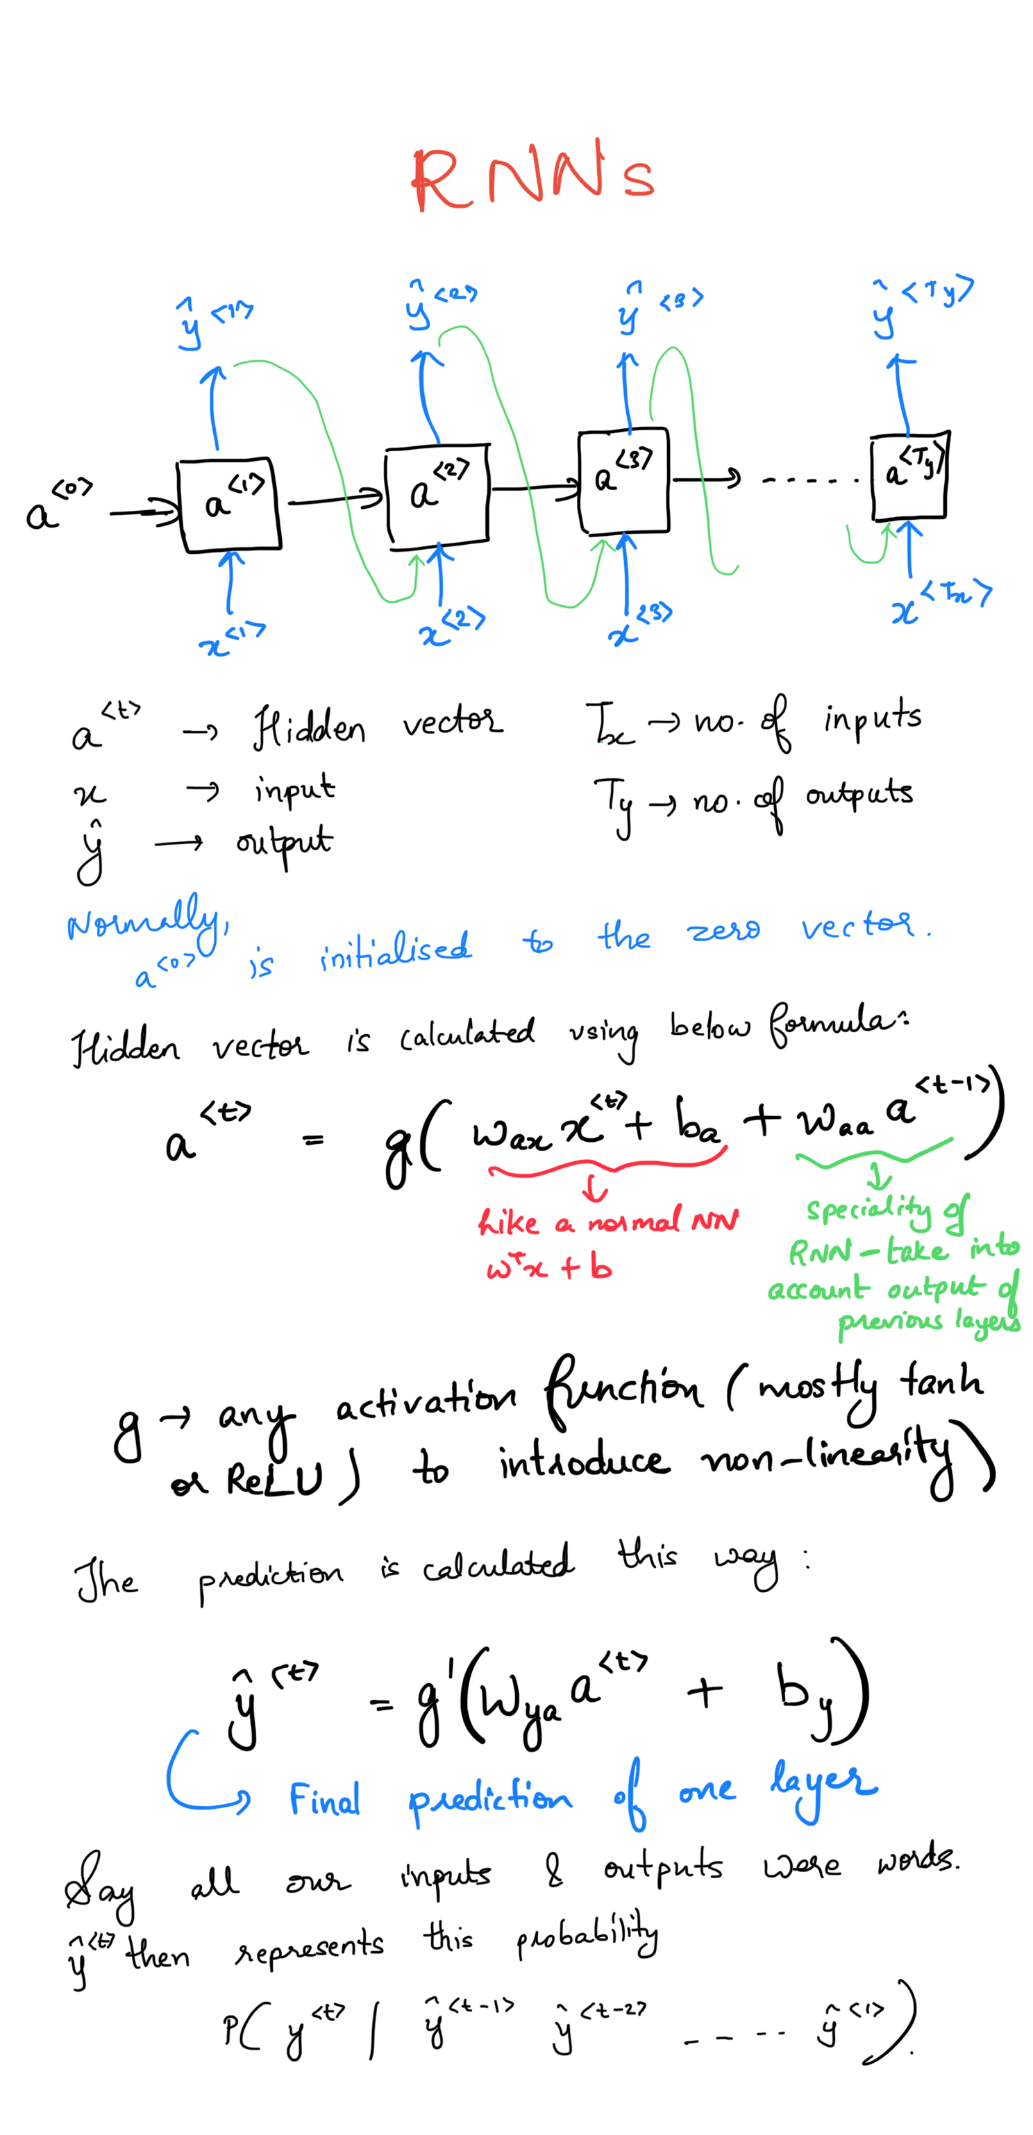 RNNs
ŷ<1> ŷ<2> ŷ<3> ŷ<Ty>
a<0> a<1> a<2> a<3> ..... a<Ty>
x<1> x<2> x<3> x<Tx>
a<t> → Hidden vector Tx → no. of inputs
x → input Ty → no. of outputs
ŷ → output
Normally,
a<0> is initialised to the zero vector.
Hidden vector is calculated using below formula:
a<t> = g( wax x<t> + ba + waa a<t-1> )
Like a normal NN
wᵀx + b
speciality of
RNN - take into
account output of
previous layers
g → any activation function ( mostly tanh
or ReLU ) to introduce non-linearity )
The prediction is calculated this way :
ŷ<t> = g'( Wya a<t> + by )
Final prediction of one layer
Say all our inputs & outputs were words.
ŷ<t> then represents this probability
P( y<t> | ŷ<t-1> ŷ<t-2> ----- ŷ<1> ).